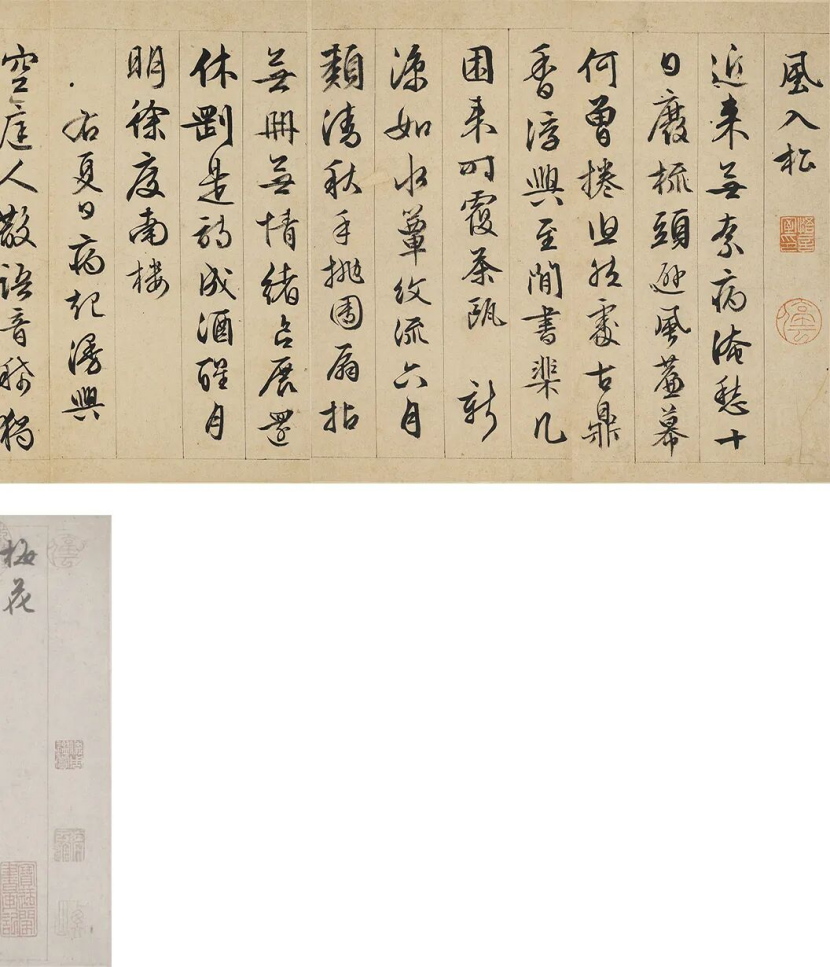 風入松
近来無奈病淹愁十
日廢梳頭避風簾幕
何曾捲處古鼎
香浮興至閒書棐几
困来时覆茶甌 新
涼如水簟紋流六月
類清秋手拋團扇拈
冊無情緒展還
休剛是詩成酒醒月
明徐度南樓
右夏日病起漫興
空庭人散語音稀獨
梅花